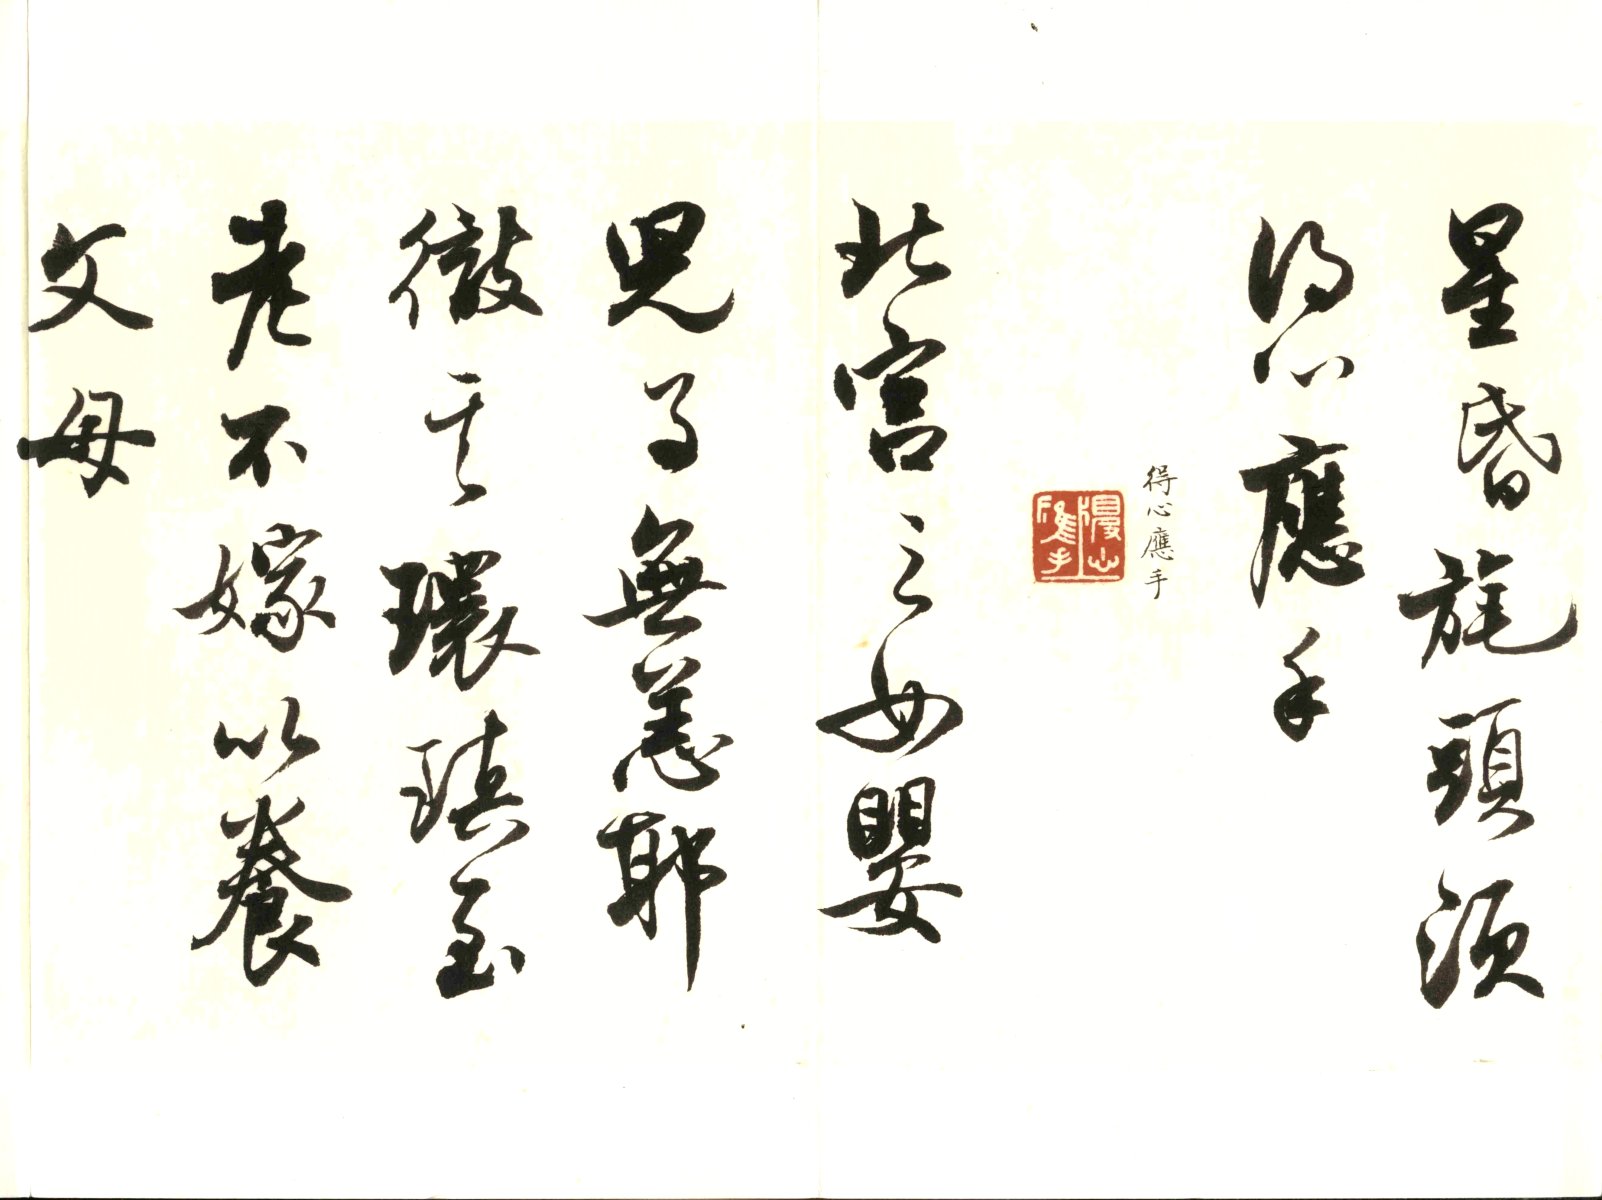 星昏旄頭須
得心應手
得心應手
得心應手
北宮之女嬰
兒子無恙耶
徹其環瑱至
老不嫁以養
父母